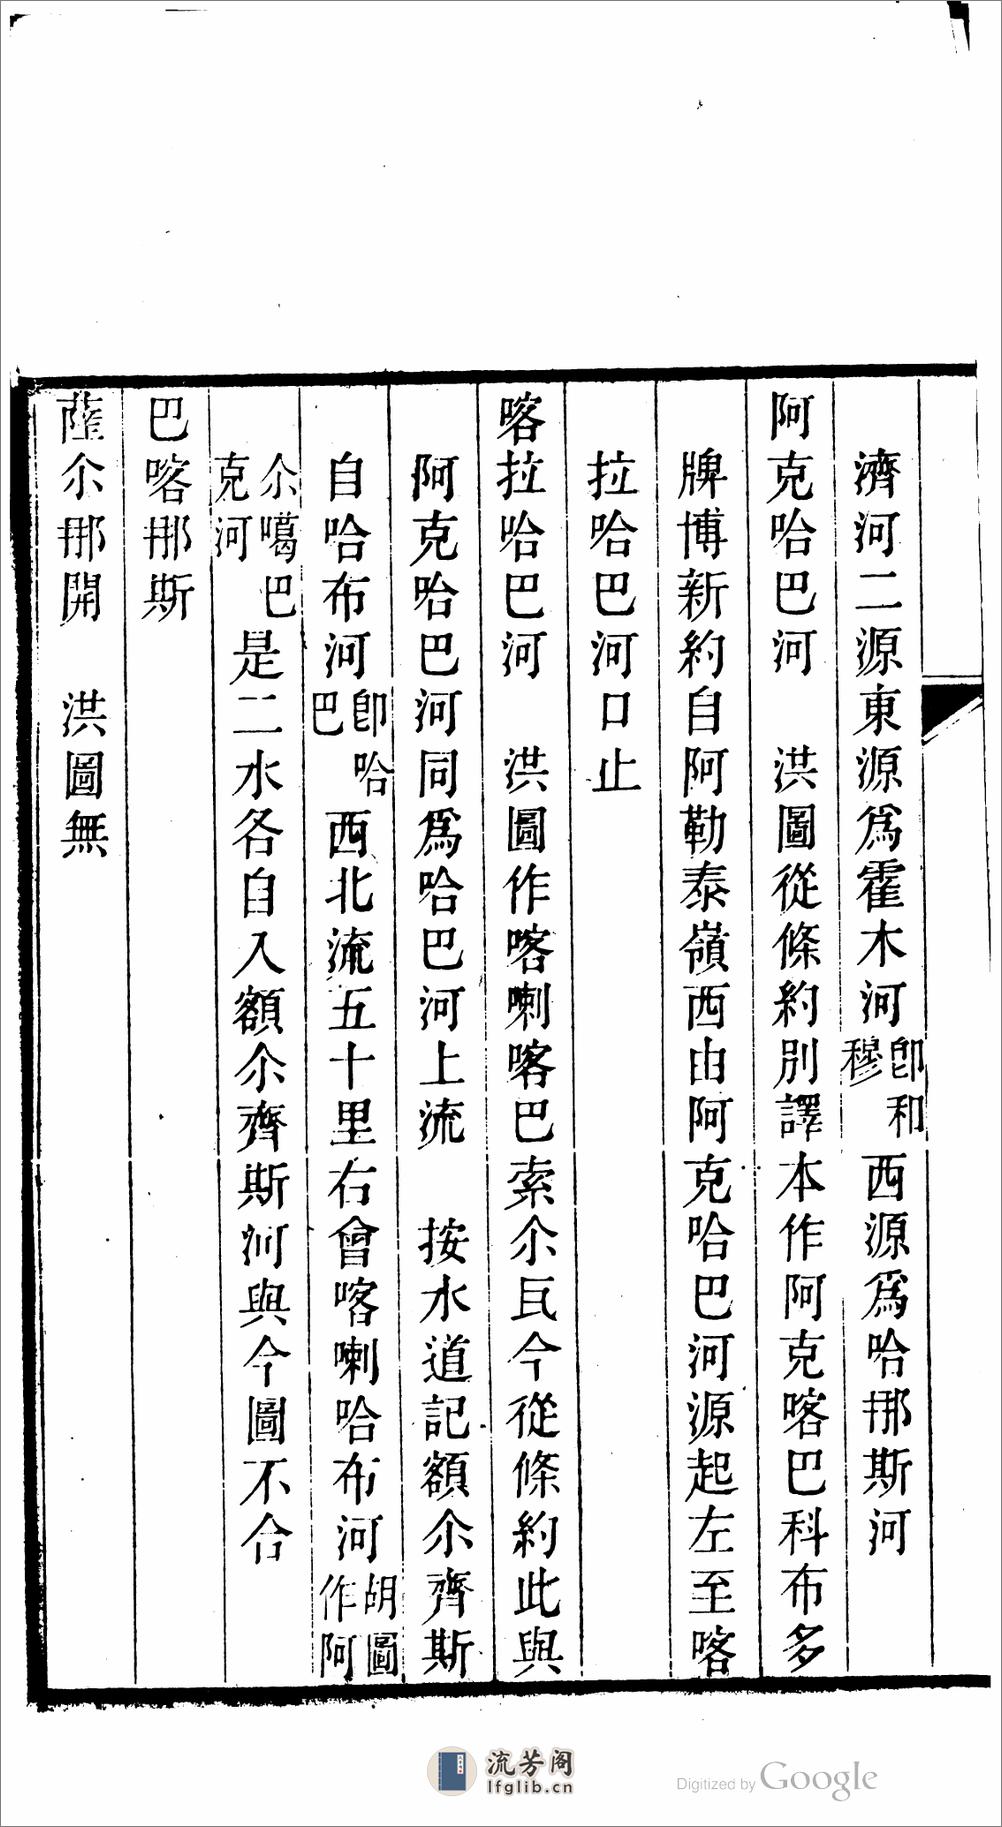 濟河二源東源爲霍木河卽和穆西源爲哈䢇斯河
阿克哈巴河　洪圖從條約別譯本作阿克喀巴科布多
牌博新約自阿勒泰嶺西由阿克哈巴河源起左至喀
拉哈巴河口止
喀拉哈巴河　洪圖作喀喇喀巴索尒瓦今從條約此與
阿克哈巴河同爲哈巴河上流　按水道記額尒齊斯
自哈布河卽哈巴西北流五十里右會喀喇哈布河胡圖作阿
尒噶巴克河是二水各自入額尒齊斯河與今圖不合
巴喀䢇斯
薩尒䢇開　洪圖無
流芳阁
lfglib.cn
Digitized by Google